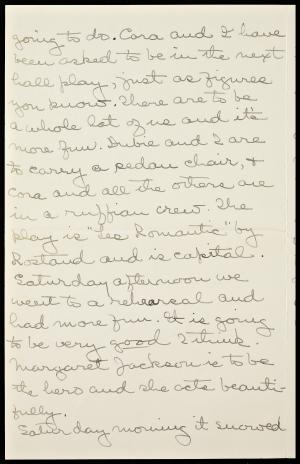 going to do. Cora and I have
been asked to be in the next
hall play, just as figures
you know. There are to be
a whole lot of us and it's
more fun. Dubie and I are
to carry a sedan chair, +
Cora and all the others are
in a ruffian crew. The
play is "Les Romantic" by
Rostand and is capital.
Saturday afternoon we
went to a rehearsal and
had more fun. It is going
to be very good I think.
Margaret Jackson is to be
the hero and she acts beauti-
fully.
Saturday morning it snowed